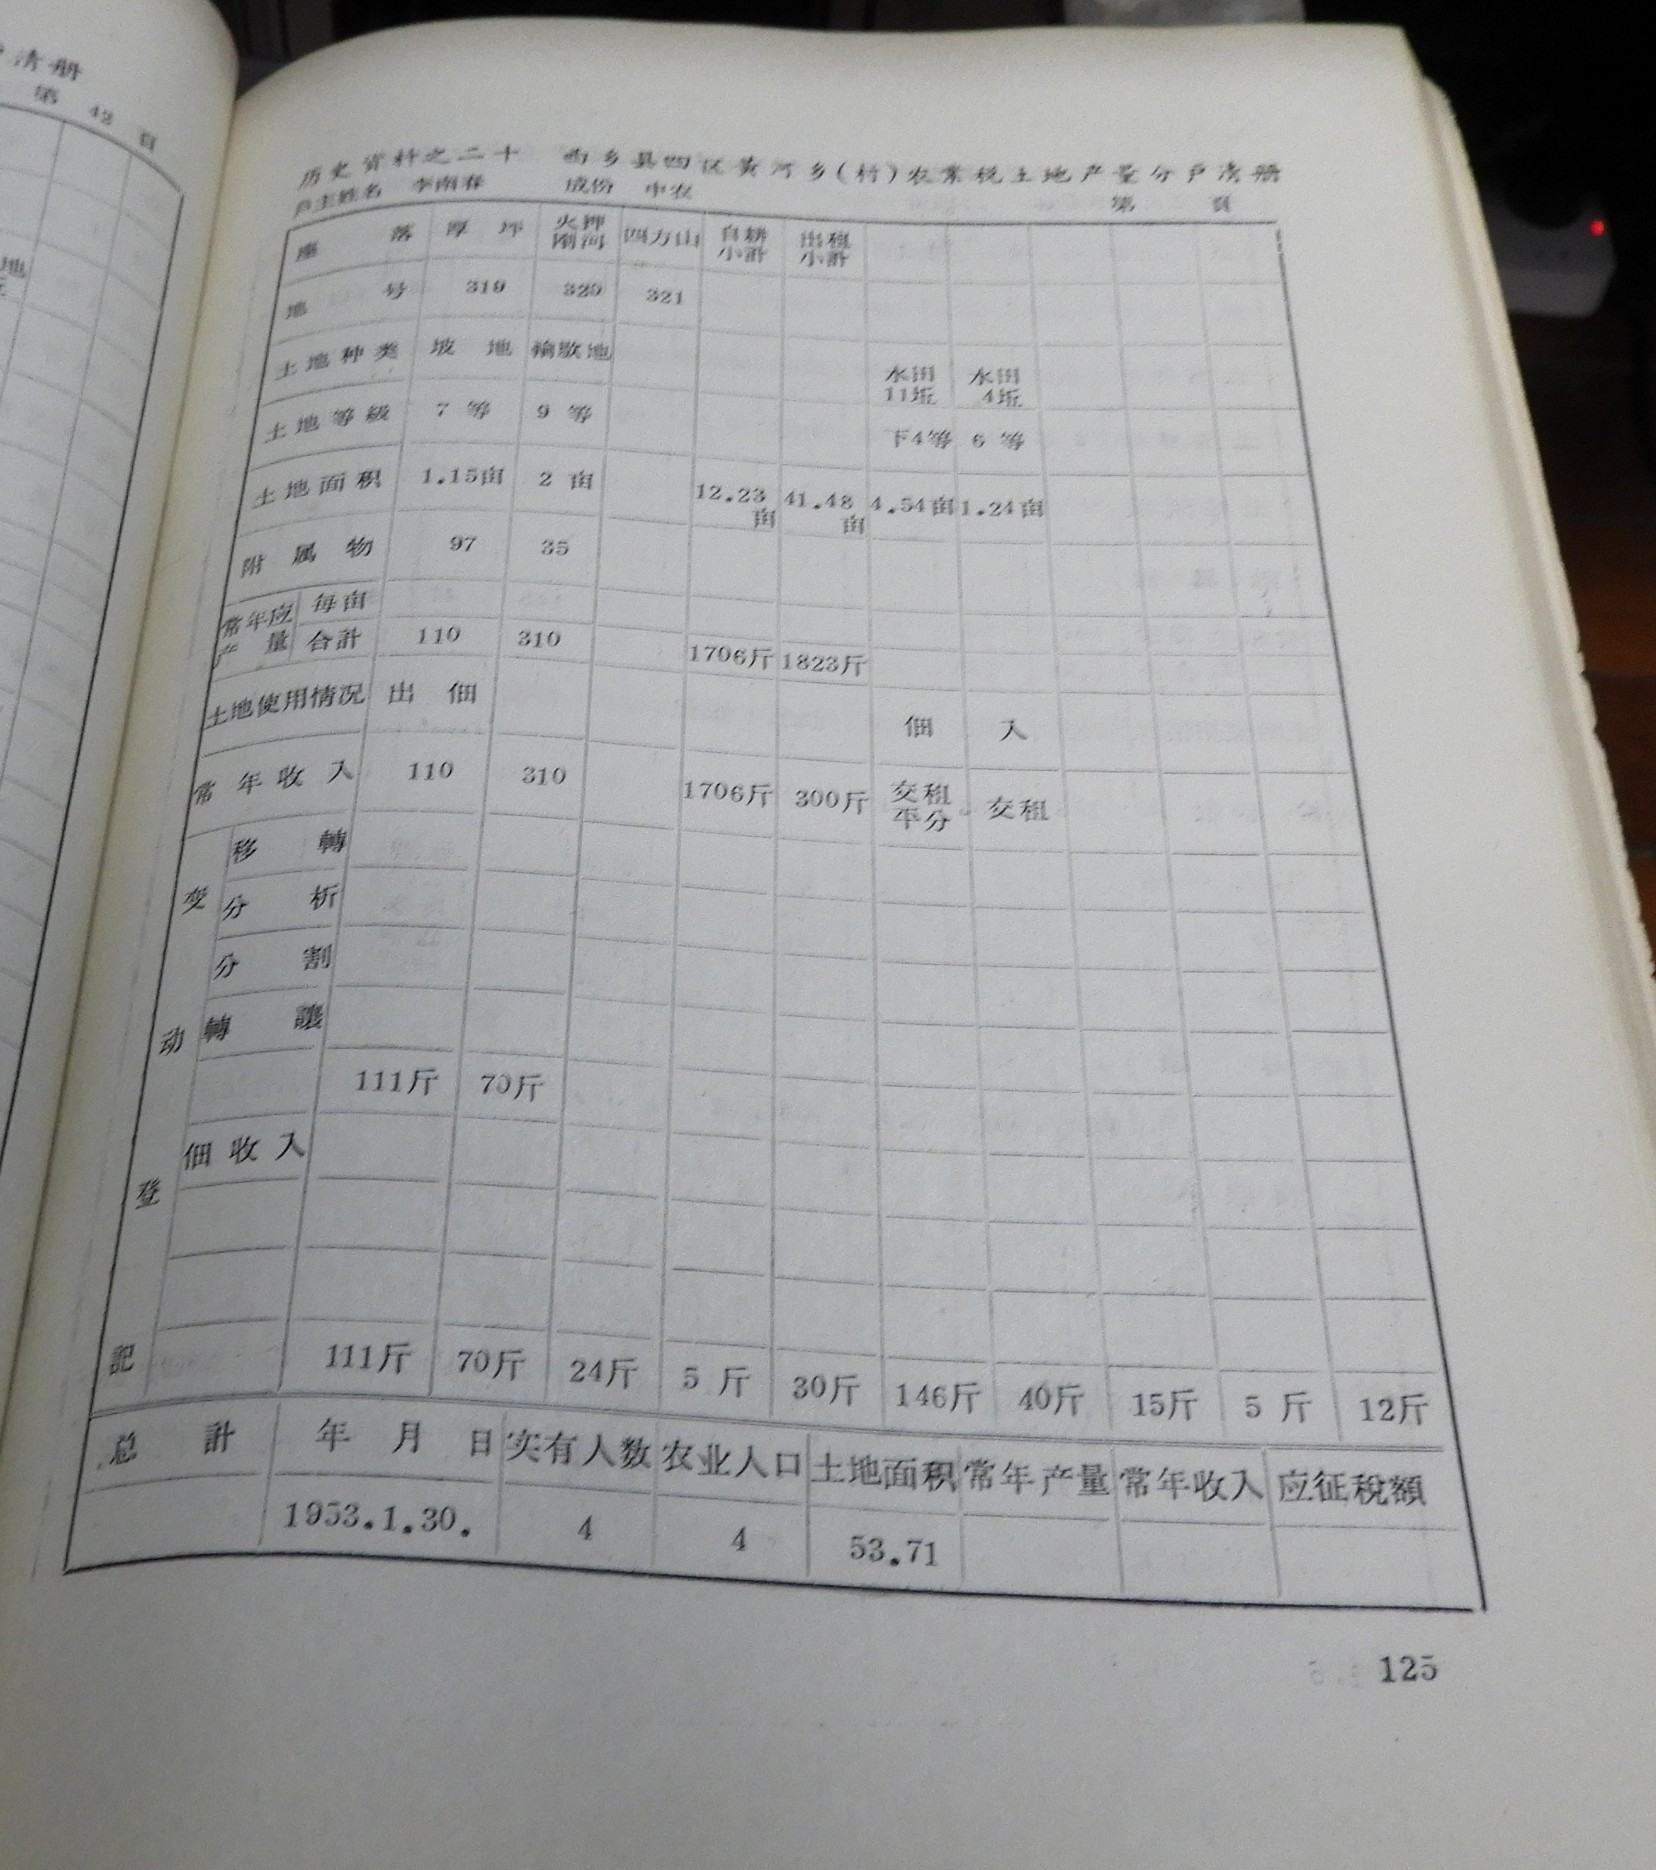 清册
第 42 頁
地
历史資料之二十 西乡县四区黄河乡(村)农業税土地产量分戶清册
戶主姓名 李南春 成份 中农 第 頁
座落 厚坪 四方山 自耕小計 出租小計
地号 319 320 321
土地种类 坡地 輪歇地 水田11坵 水田4坵
土地等級 7等 9等 下4等 6等
土地面积 1.15亩 2亩 12.23亩 41.48亩 4.54亩 1.24亩
附属物 97 35
常年应产量 每亩
合計 110 310 1706斤 1823斤
土地使用情况 出佃 佃入
常年收入 110 310 1706斤 300斤 交租平分 交租
变动登記
移轉
分析
分割
轉讓
111斤 70斤
佃收入
111斤 70斤 24斤 5斤 30斤 146斤 40斤 15斤 5斤 12斤
总計 年月日 实有人数 农业人口 土地面积 常年产量 常年收入 应征税額
1953.1.30. 4 4 53.71
125